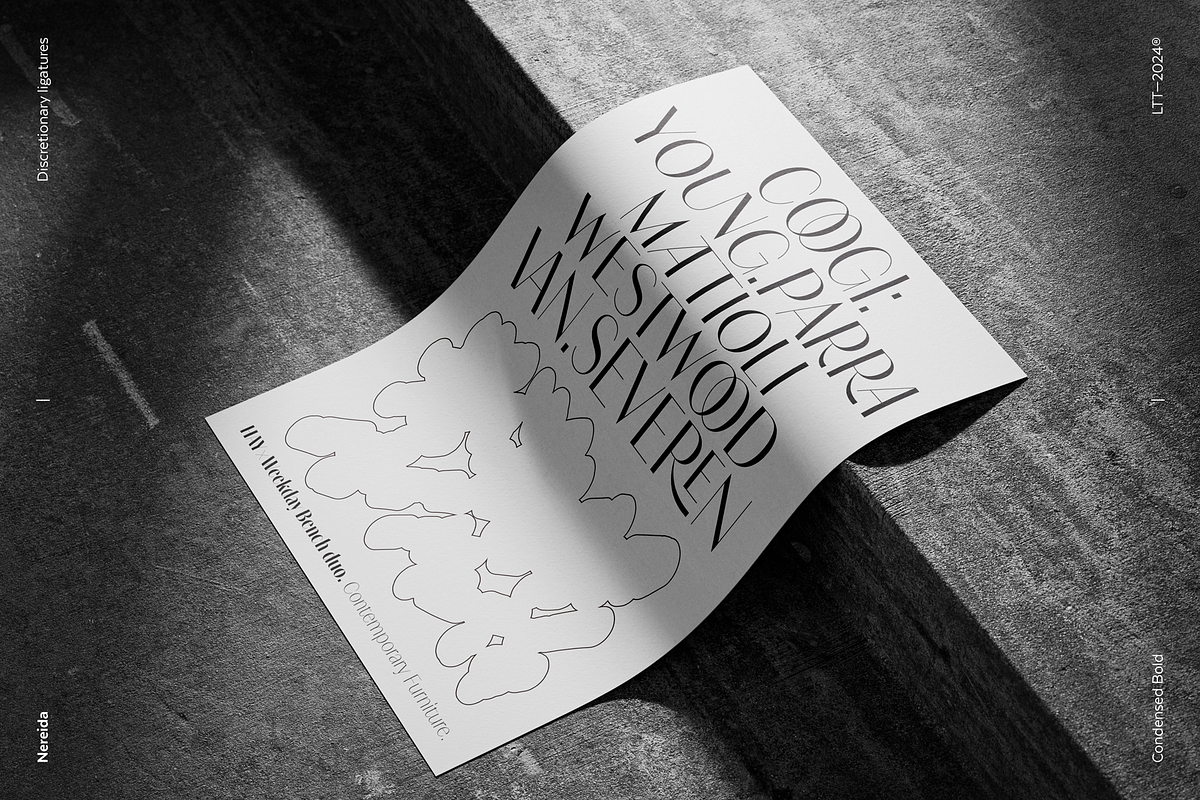 Discretionary ligatures
LTT—2024®
COOGI.
YOUNG.PARRA
MATTIOLI
WESTWOOD
VAN.SEVEREN
HAY x Weekday Bench duo. Contemporary Furniture.
Nereida
Condensed Bold